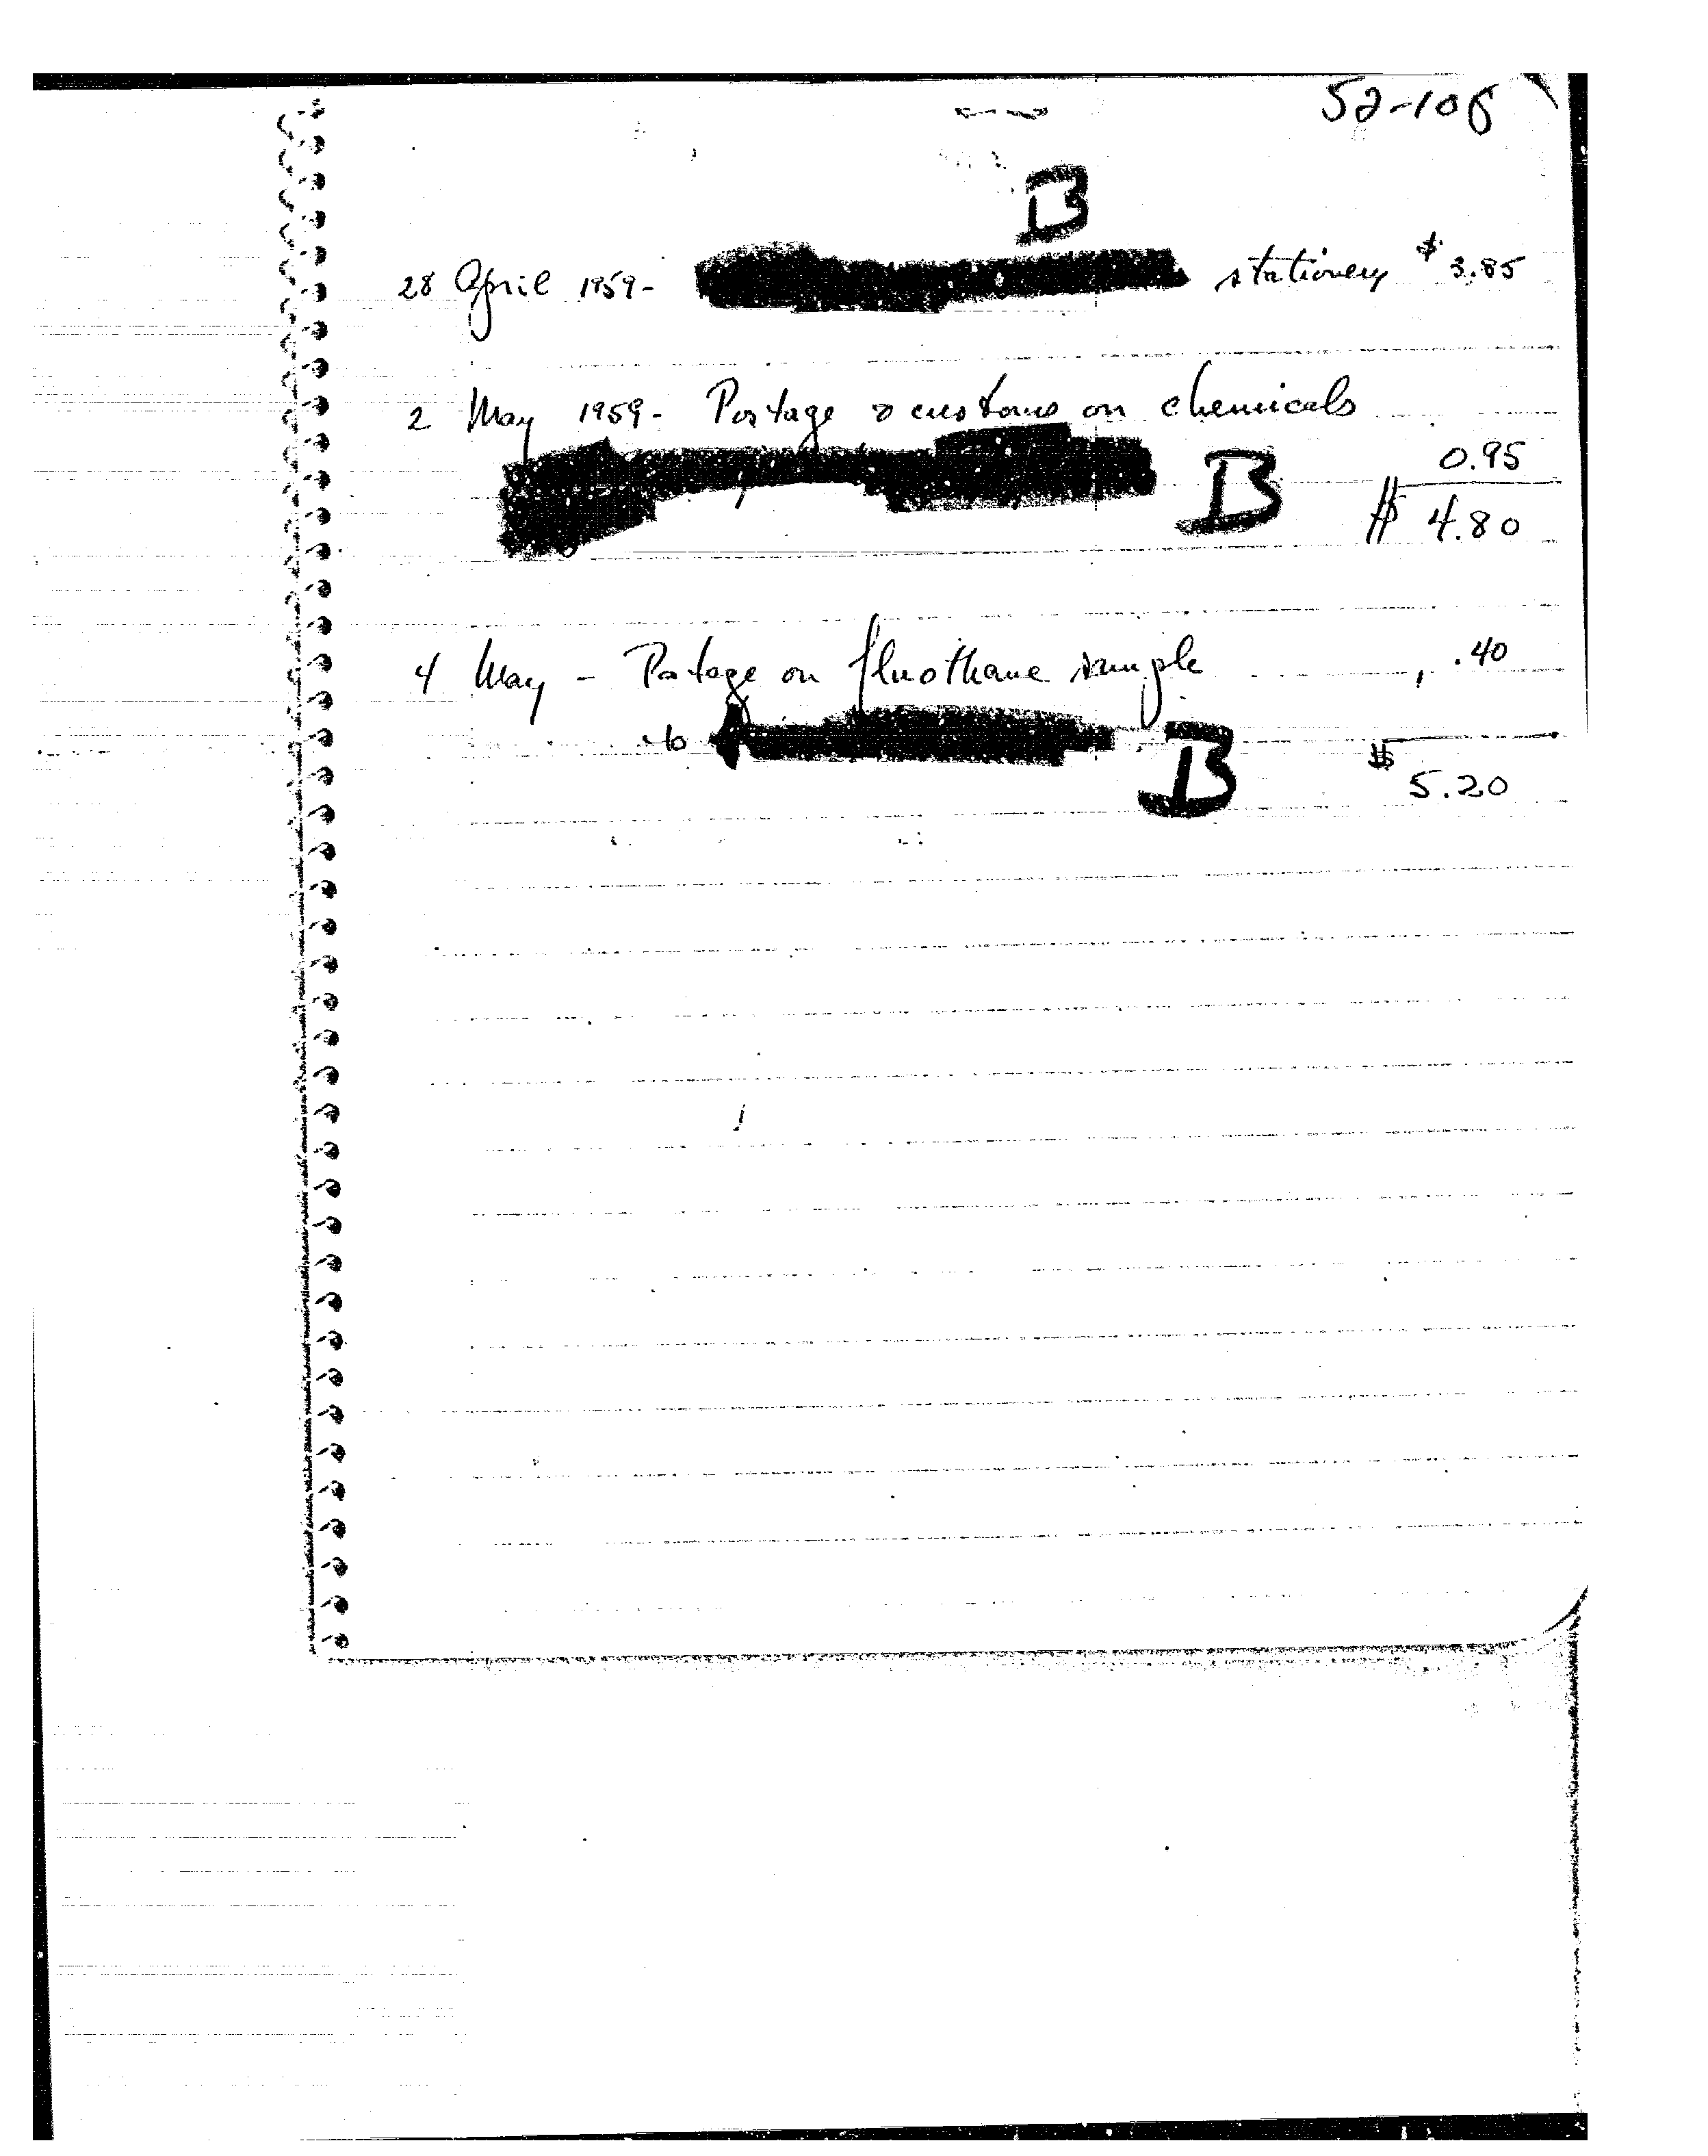 52-106
B
28 April 1959- stationery $ 3.85
2 May 1959- Postage & customs on chemicals
0.95
B $ 4.80
4 May - Postage on fluothane sample .40
to B
$ 5.20